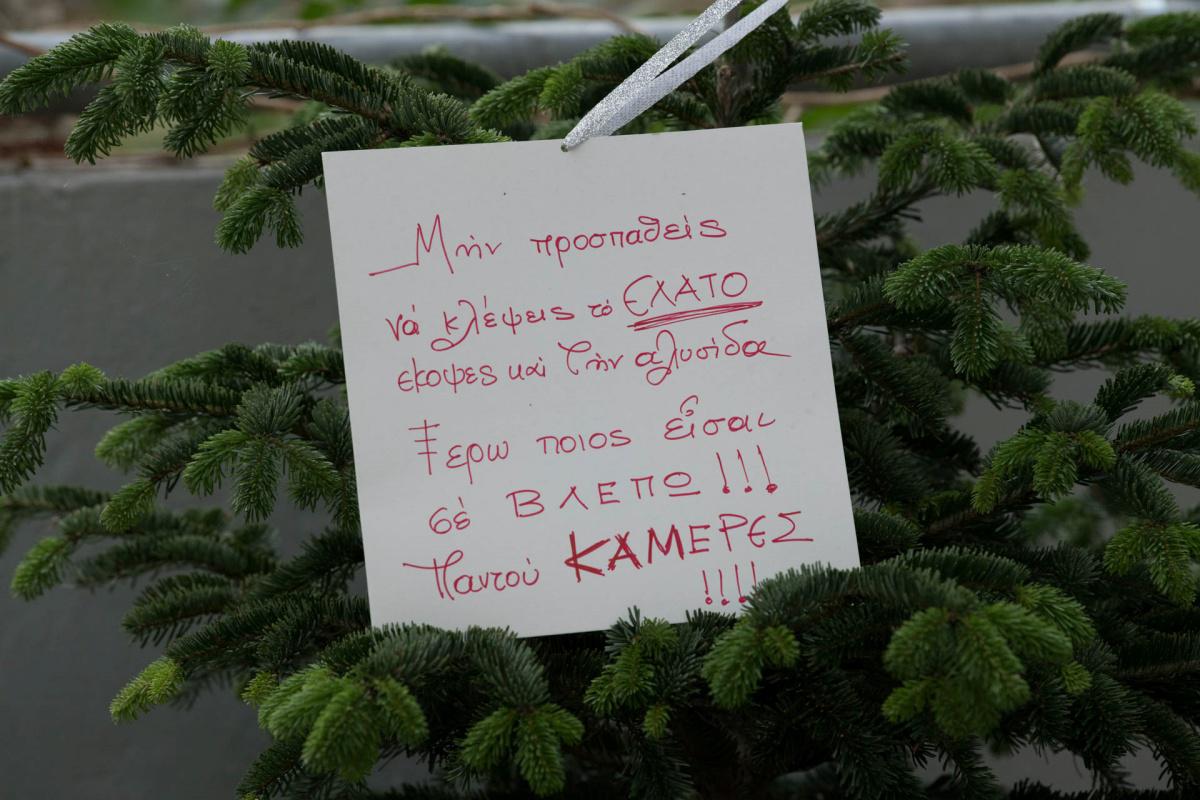 Μήν προσπαθείς
νά κλέψεις τό ΕΛΑΤΟ
έκοψες καί τήν αλυσίδα
Ξερω ποιος είσαι
σέ ΒΛΕΠΩ !!!
Παντού ΚΑΜΕΡΕΣ
!!!!